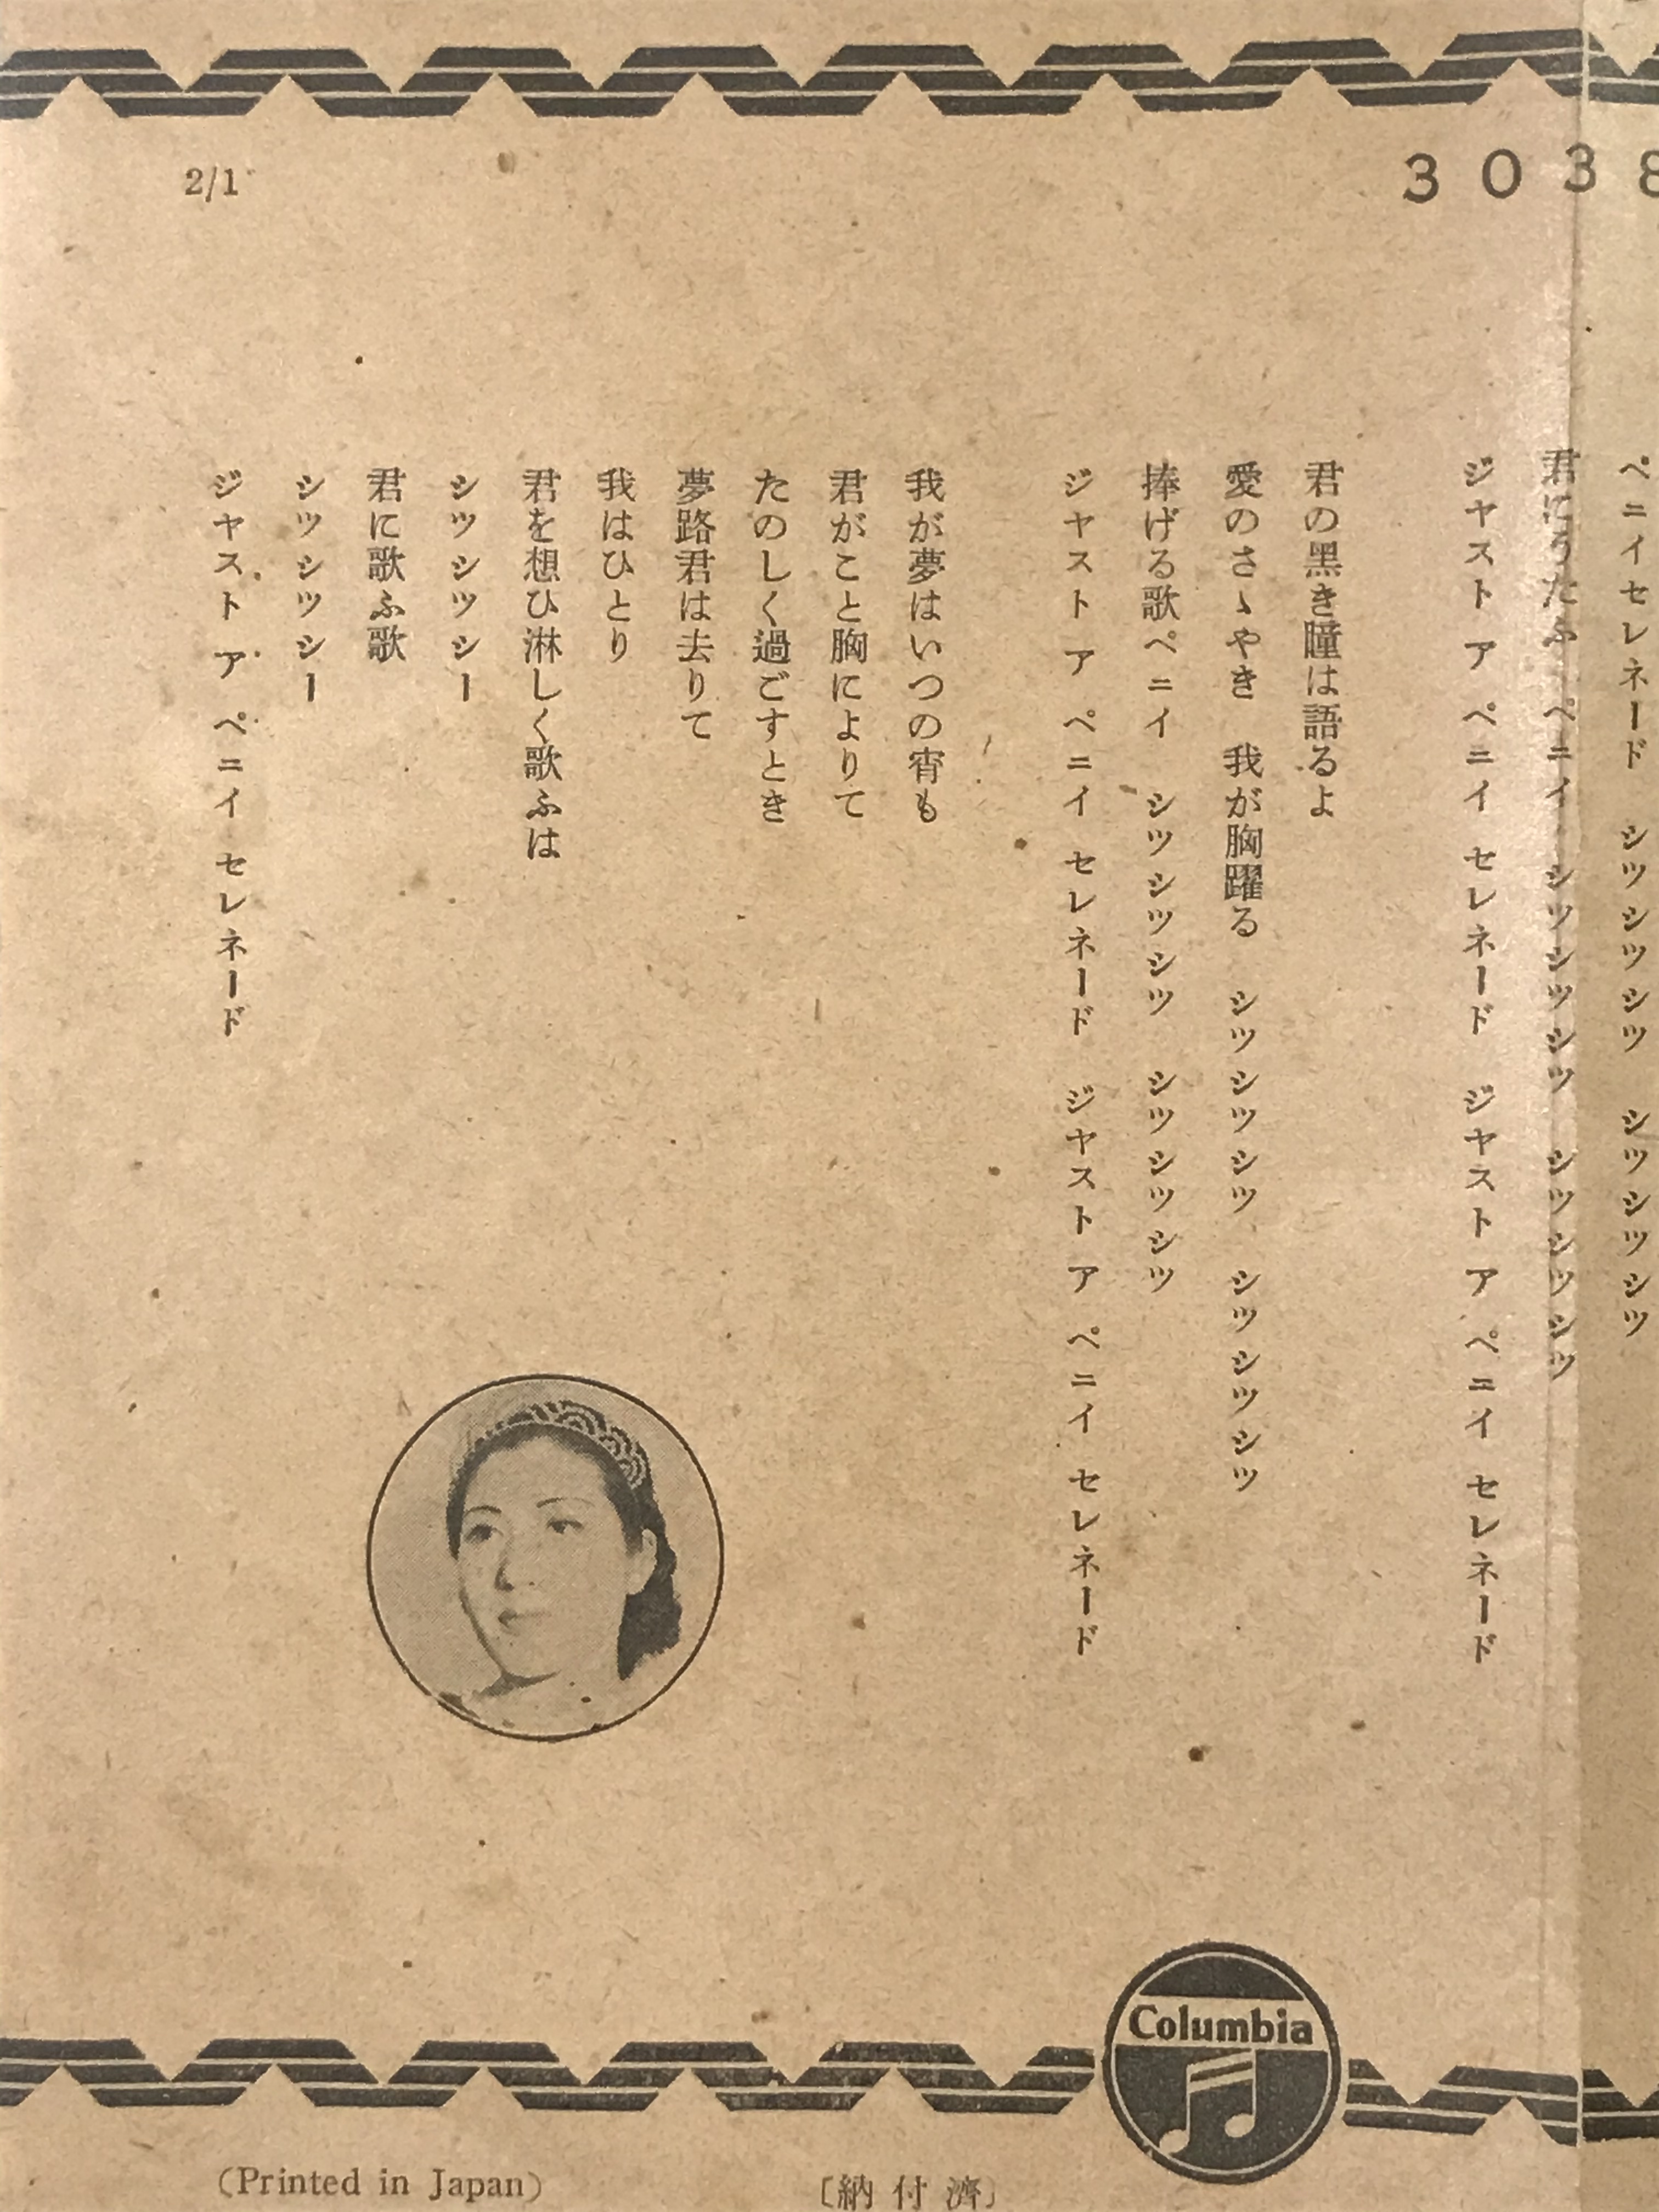 3038
2/1
ペニイセレネード　シツシツシツ　シツシツシツ
君にうたふ　ペニイ　シツシツシツ　シツシツシツ
ジヤスト ア ペニイ セレネード　ジヤスト ア ペニイ セレネード
君の黒き瞳は語るよ
愛のさゝやき　我が胸躍る　シツシツシツ　シツシツシツ
捧げる歌ペニイ　シツシツシツ　シツシツシツ
ジヤスト ア ペニイ セレネード　ジヤスト ア ペニイ セレネード
我が夢はいつの宵も
君がこと胸によりて
たのしく過ごすとき
夢路君は去りて
我はひとり
君を想ひ淋しく歌ふは
シツシツシー
君に歌ふ歌
シツシツシー
ジヤスト ア ペニイ セレネード
Columbia
(Printed in Japan)
〔納付濟〕